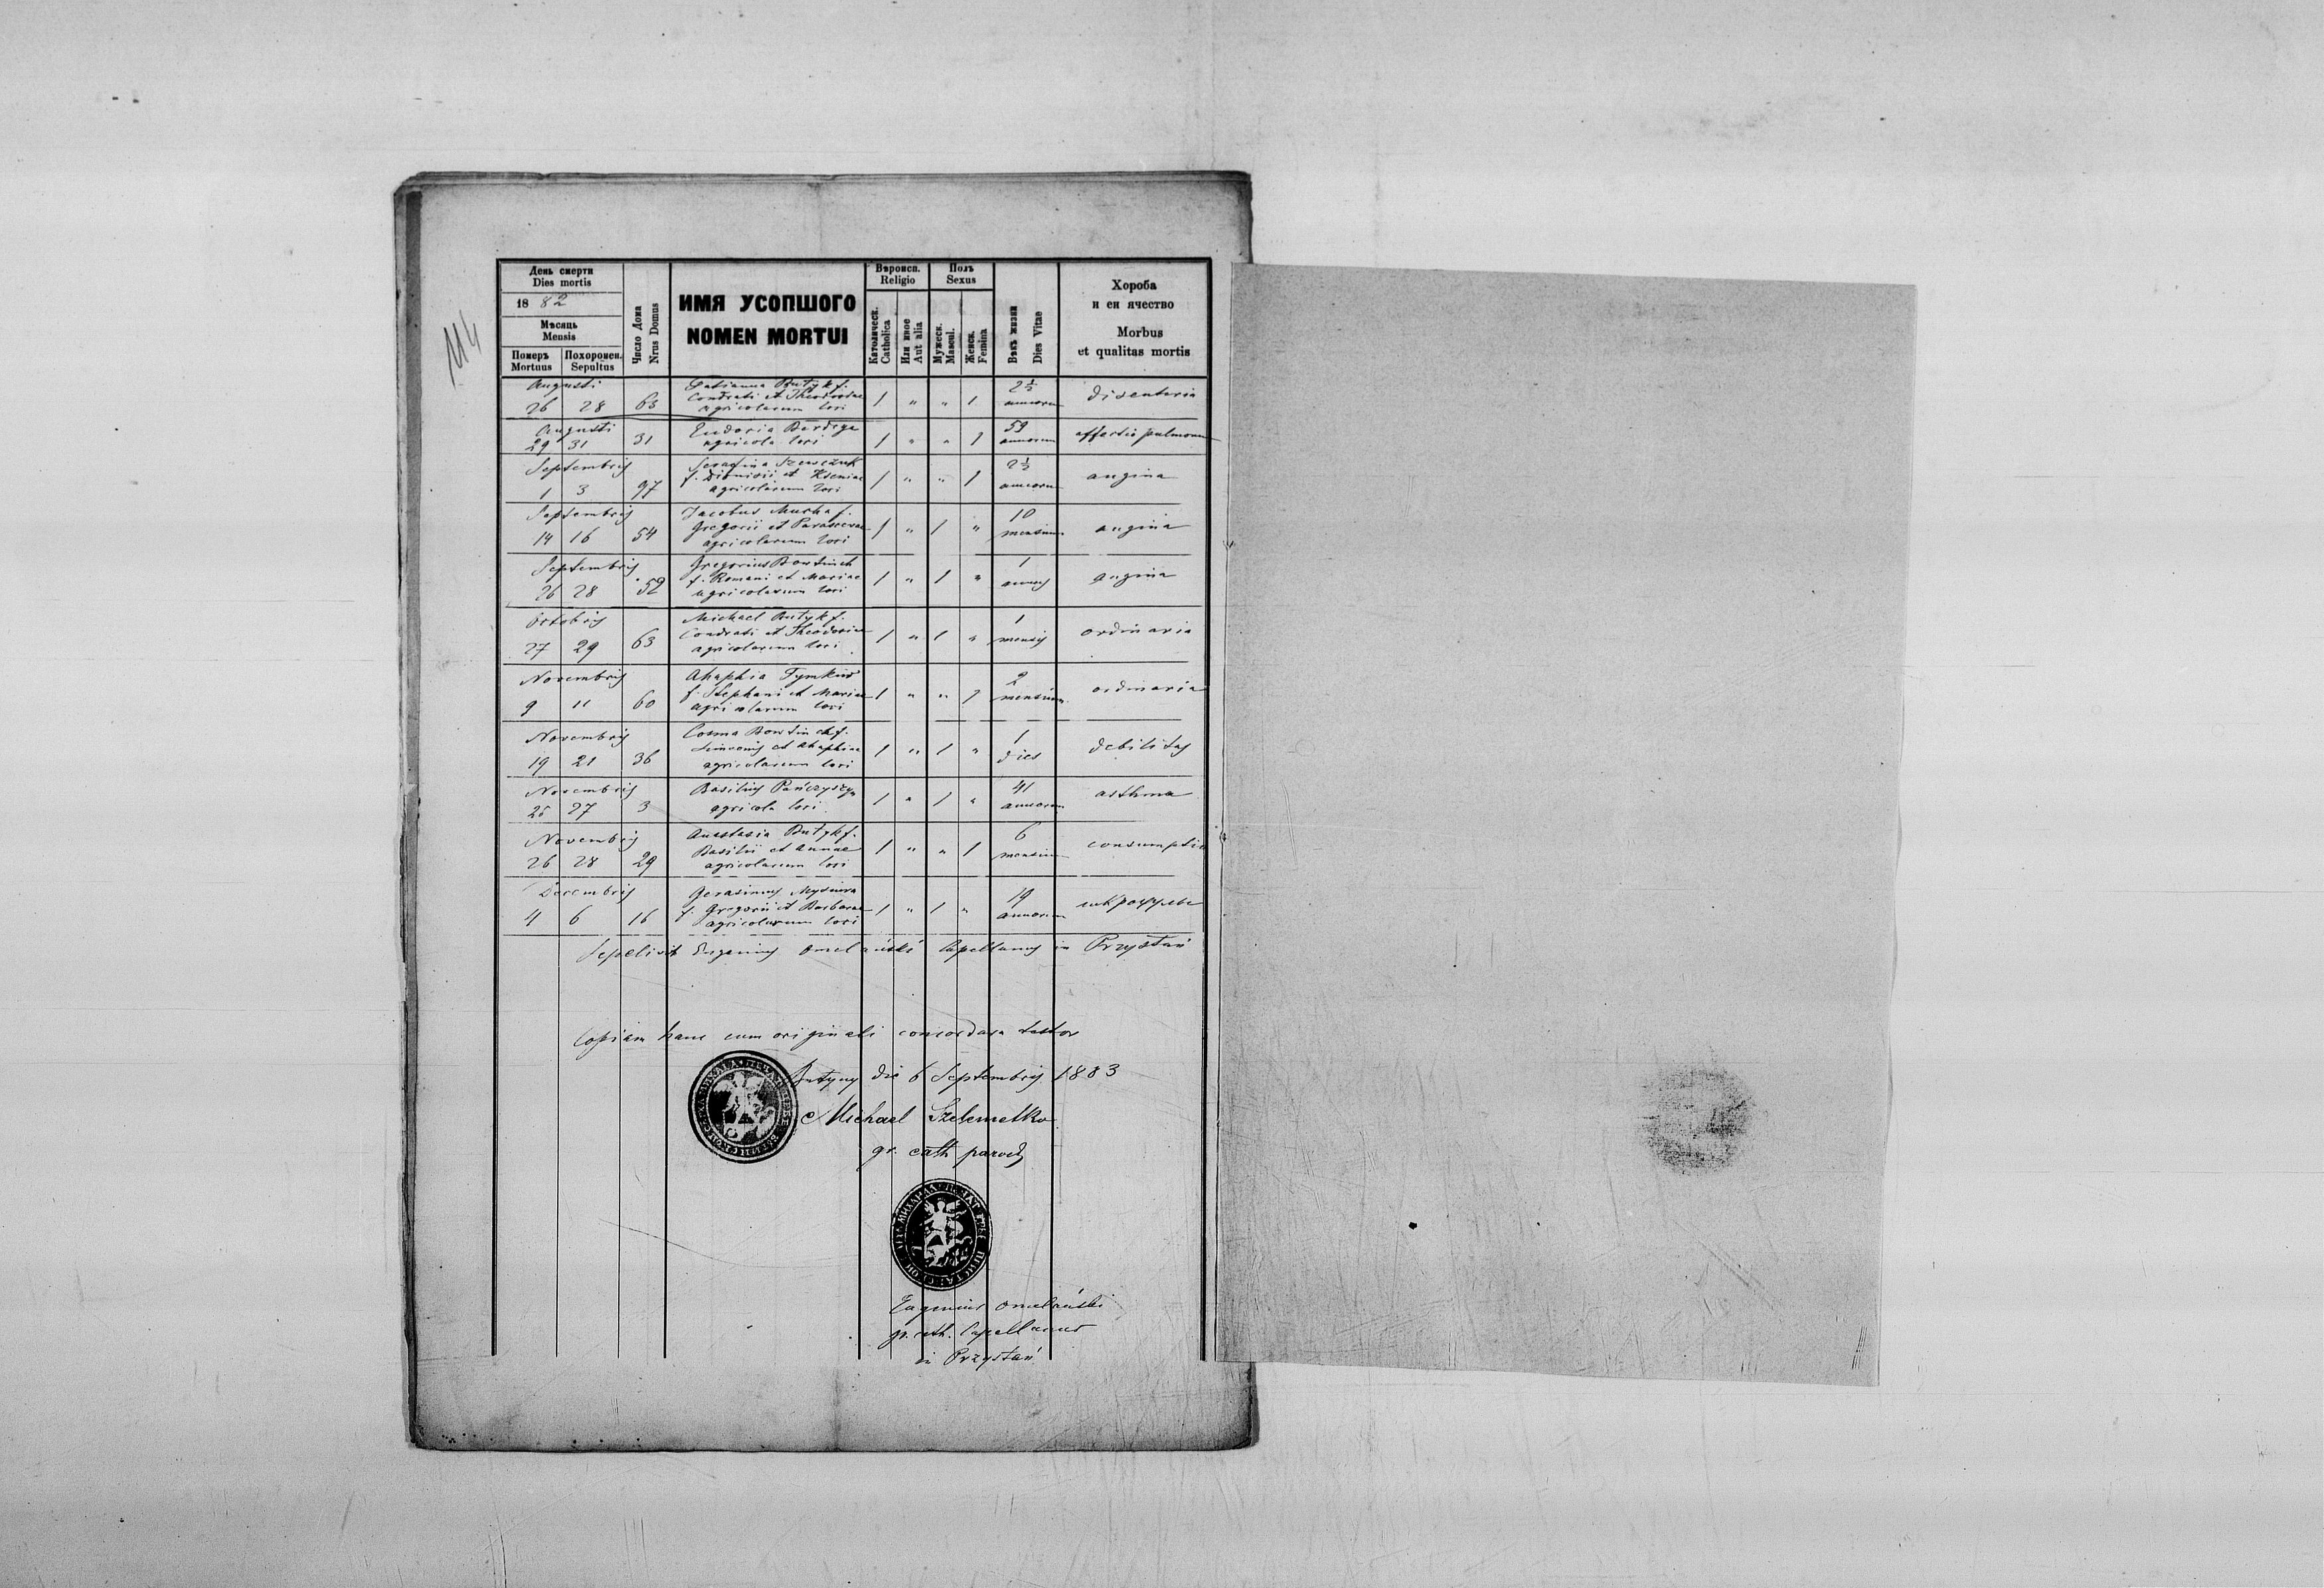 114
День смерти
Dies mortis
1882
Мѣсяць
Mensis
Померъ
Mortuus
Похоронен.
Sepultus
Число Дома
Nrus Domus
ИМЯ УСОПШОГО
NOMEN MORTUI
Вѣроисп.
Religio
Католическ.
Catholica
Или иное
Aut alia
Полъ
Sexus
Мужеск.
Mascul.
Женск.
Femina
Вѣкъ жизни
Dies Vitae
Хороба
и еи ячество
Morbus
et qualitas mortis
Augusti
26 28 63
Tatianna Butyk f.
Condrati et Theodoriae
agricolarum loci
1 " " 1
2½
annorum
disenteria
Augusti
29 31 31
Eudoxia
agricola loci
1 " " 1
59
annorum
affectio pulmonum
Septembris
1 3 97
Serafina Szewczuk
f. Dionisii et Kseniae
agricolarum loci
1 " " 1
2½
annorum
angina
Septembris
14 16 54
Jacobus Mucha f.
Gregorii et Parascevae
agricolarum loci
1 " 1 "
10
mensium
angina
Septembris
26 28 52
Gregorius Bowtinek
f. Romani et Mariae
agricolarum loci
1 " 1 "
1
annus
angina
Octobris
27 29 63
Michael Butyk f.
Condrati et Theodoriae
agricolarum loci
1 " 1 "
1
mensis
ordinaria
Novembris
9 11 60
Ahaphia Tymkiw
f. Stephani et Mariae
agricolarum loci
1 " " 1
2
mensium
ordinaria
Novembris
19 21 36
Cosma f.
Simeonis et Ahaphiae
agricolarum loci
1 " 1 "
1
dies
debilitas
Novembris
25 27 3
Basilius Pańczyszyn
agricola loci
1 " 1 "
41
annorum
asthma
Novembris
26 28 29
Anastasia Butyk f.
Basilii et Annae
agricolarum loci
1 " " 1
6
mensium
consumptio
Decembris
4 6 16
Gerasimus
f. Gregorii et Barbarae
agricolarum loci
1 " 1 "
19
annorum
Sepelivit Eugenius Omelański Capellanus in Przystań
Copiam hanc cum originali concordare testor
Butyny die 6 Septembris 1883
Michael Szelemetko
gr. cath. paroch
Eugenius Omelański
gr. cath. Capellanus
in Przystań